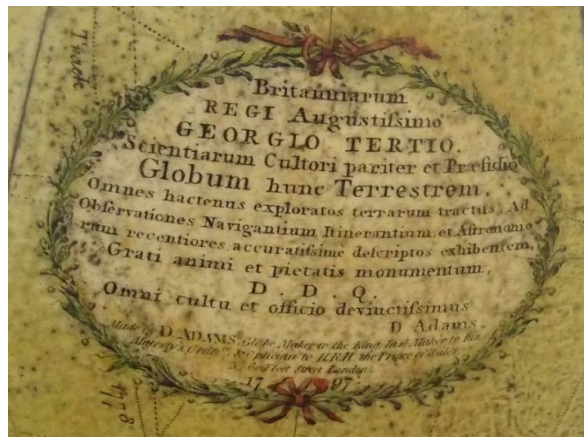 Trade
Britanniarum
REGI Augustiſsimo
GEORGIO TERTIO.
Scientiarum Cultori pariter et Præſidio
Globum hunc Terrestrem,
Omnes hactenus exploratos terrarum tractus, Ad
Obſervationes Navigantium Itinerantium, et Aſtronomo
rum recentiores accuratiſsime deſcriptos exhibentem,
Grati animi et pietatis monumentum,
D . D . Q .
Omni cultu et officio devinctiſsimus
D Adams.
Made by D. ADAMS, Globe Maker to the King, Inst. Maker to his
Majesty's Ordn.ce & Optician to H.R.H. the Prince of Wales
Fleet Street London
17 97
1778